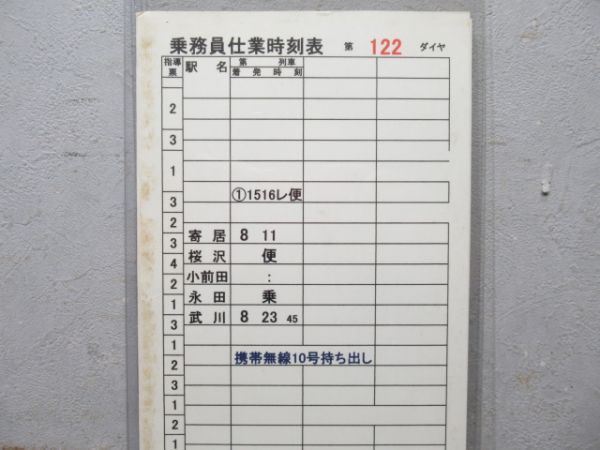 乗務員仕業時刻表 第 122 ダイヤ
指導票 駅名 第 列車
着発時刻
2
3
1
3 ①1516レ便
2
3 寄居 8 11
4 桜沢 便
2 小前田 :
1 永田 乗
3 武川 8 23 45
1
2 携帯無線10号持ち出し
3
1
2
1